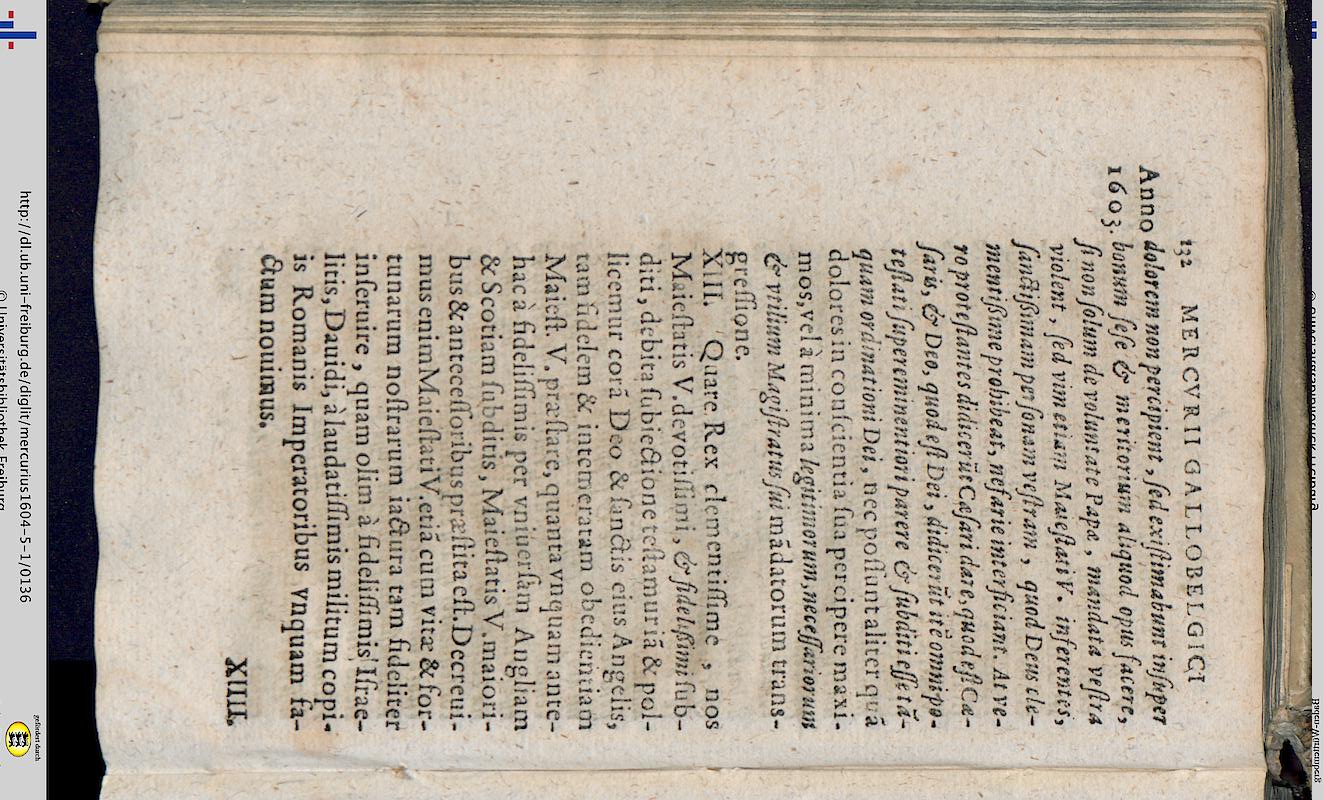 132 MERCVRII GALLOBELGICI
Anno dolorem non percipient, ſed exiſtimabunt inſuper
1603. bonum ſeſe & meritorium aliquod opus facere,
ſi non ſolum de voluntate Papæ, mandata veſtra
violent, ſed vim etiam Maieſtati V. inferentes,
ſanctiſsimam perſonam veſtram, quod Deus cle-
mentiſsme prohibeat, nefarie interficiant. At ve-
ro proteſtantes didicerūt Cæſari dare, quod eſt Cæ-
ſaris, & Deo, quod eſt Dei, didicerūt itē omnipo-
teſtati ſupereminentiori parere & ſubditi eſſe tā-
quam ordinationi Dei, nec poſſunt aliter quā
dolores in conſcientia ſua percipere maxi-
mos, vel à minima legitimorum, neceſſariorum
& vtilium Magiſtratus ſui mādatorum trans-
greſſione.
XIII. Quare Rex clementiſſime, nos
Maieſtatis V. devotiſſimi, & fideliſsimi ſub-
diti, debita ſubiectione teſtamur iā & pol-
licemur corā Deo & ſanctis eius Angelis,
tam fidelem & intemeratam obedientiam
Maieſt. V. præſtare, quanta vnquam ante-
hac à fideliſſimis per vniuerſam Angliam
& Scotiam ſubditis, Maieſtatis V. maiori-
bus & anteceſſoribus præſtita eſt. Decreui-
mus enim Maieſtati V. etiā cum vitæ & for-
tunarum noſtrarum iactura tam fideliter
inſeruire, quam olim à fideliſſimis Iſrae-
litis, Dauidi, à laudatiſſimis militum copi-
is Romanis Imperatoribus vnquam fa-
ctum nouimus.
XIIII.
http://dl.ub.uni-freiburg.de/diglit/mercurius1604-5-1/0136
© Universitätsbibliothek Freiburg
gefördert durch